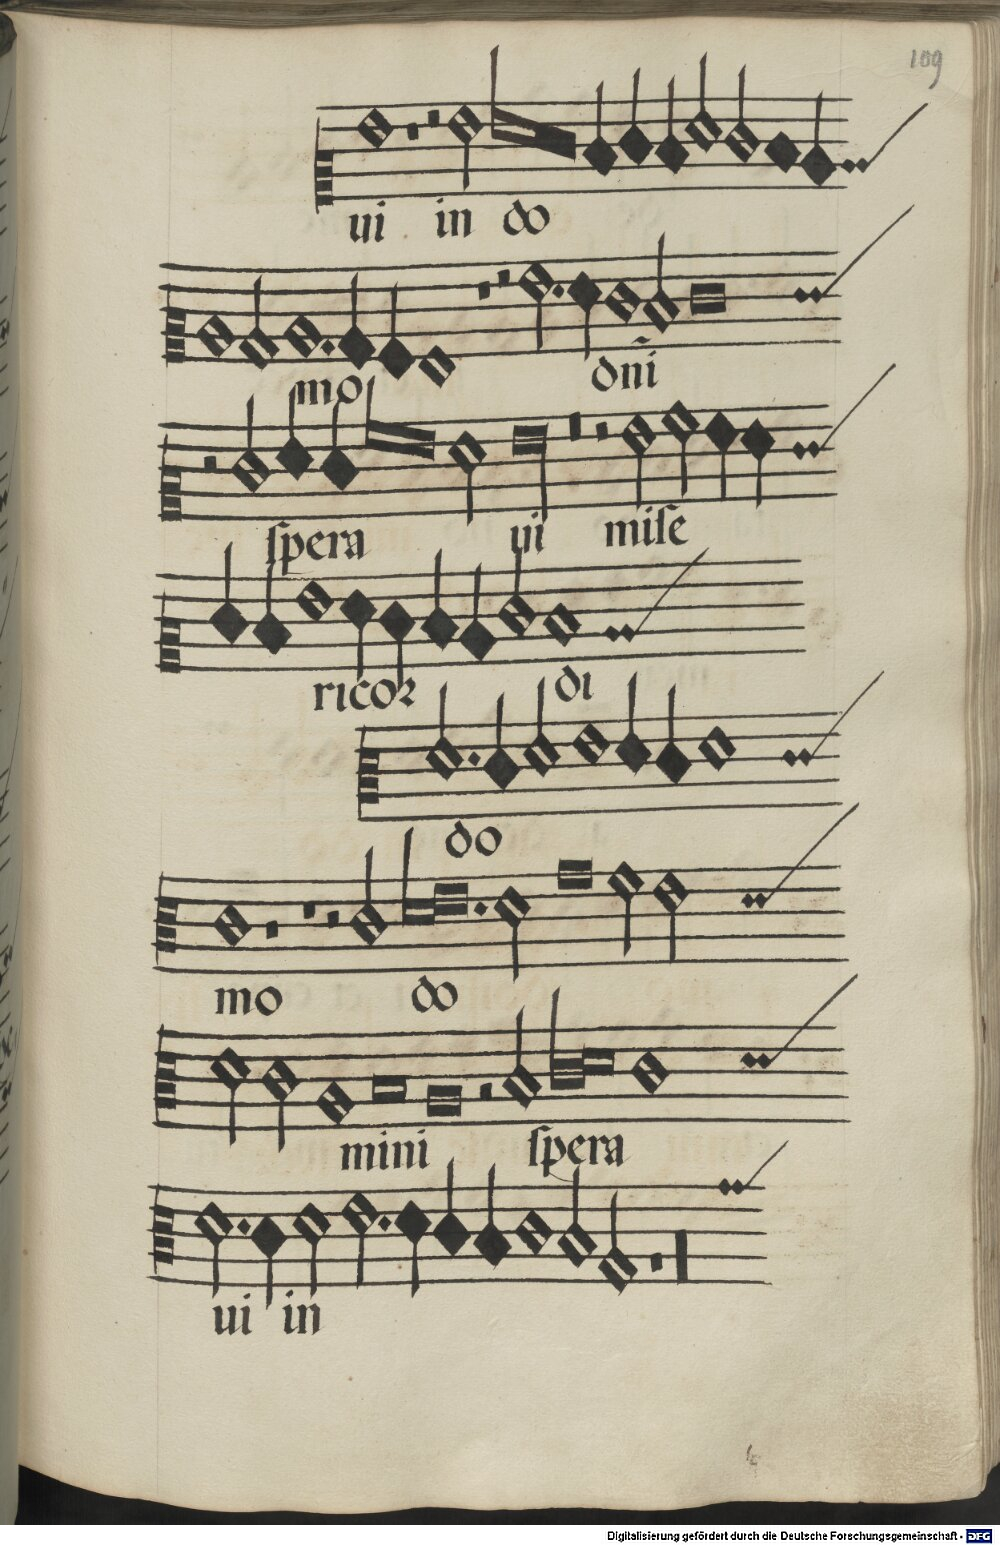 109
ui in do
mo dn̄i
ſpera ui miſe
ricoꝛ di
do
mo do
mini ſpera
ui in
Digitalisierung gefördert durch die Deutsche Forschungsgemeinschaft - DFG